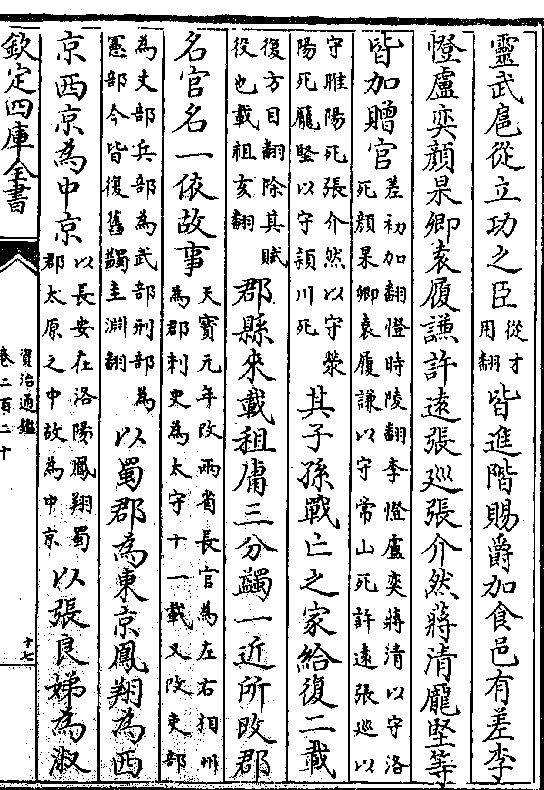 靈武扈從立功之臣從才用翻皆進階賜爵加食邑有差李
憕盧奕顔杲卿袁履謙許遠張廵張介然蔣清龎堅等
皆加贈官差初加翻憕時陵翻李憕盧奕蔣清以守洛死顔杲卿袁履謙以守常山死許遠張巡以
守睢陽死張介然以守滎陽死龎堅以守潁川死其子孫戰亡之家給復二載
復方目翻除其賦役也載祖亥翻郡縣來載租庸三分蠲一近所改郡
名官名一依故事天寶元年改兩省長官為左右相州為郡刺史為太守十一載又改吏部
為文部兵部為武部刑部為憲部今皆復舊蠲圭淵翻以蜀郡為東京鳳翔為西
京西京為中京以長安在洛陽鳳翔蜀郡太原之中故為中京以張良娣為淑
欽定四庫全書
資治通鑑
卷二百二十
十七